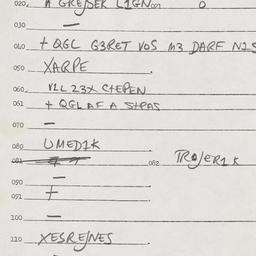 020. A GREJSEK L1GN 007 0
030 —
040 + QGL G3RET VOS M3 DARF N1S
050 XARPE
060 V1L 23X C+EPEN
061 + QGL AF A S+PAS
070 —
080 UMED1K
081 082 TROJER1K
090 —
091 +
100 —
110 XESREJNES